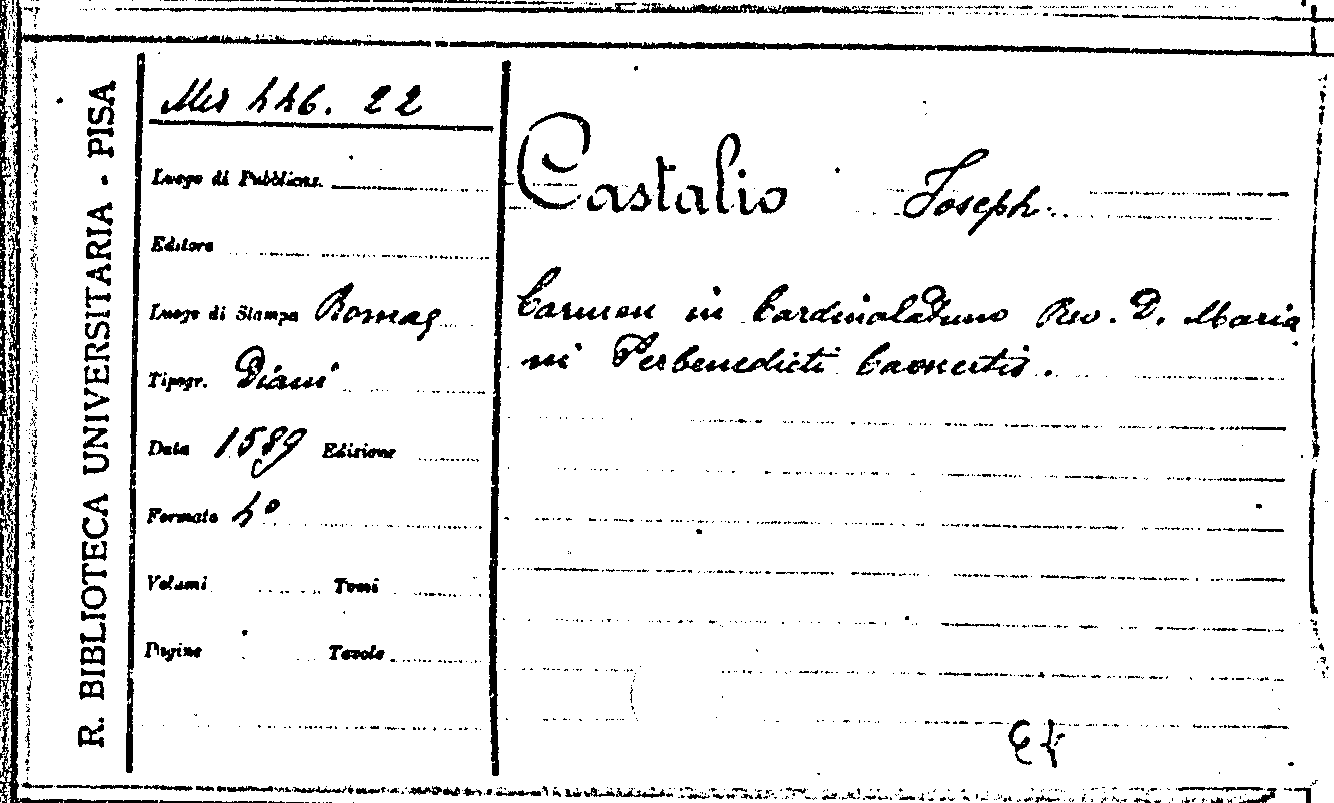 R. BIBLIOTECA UNIVERSITARIA - PISA
Mis 446. 22
Luogo di Pubblicaz.
Editore
Luogo di Stampa Romae
Tipogr. Diani
Data 1589 Edizione
Formato 4º
Volumi Tomi
Pagine Tavole
Castalio Joseph.
Carmen in Cardinalatum Rev. D. Maria
ni Perbenedicti